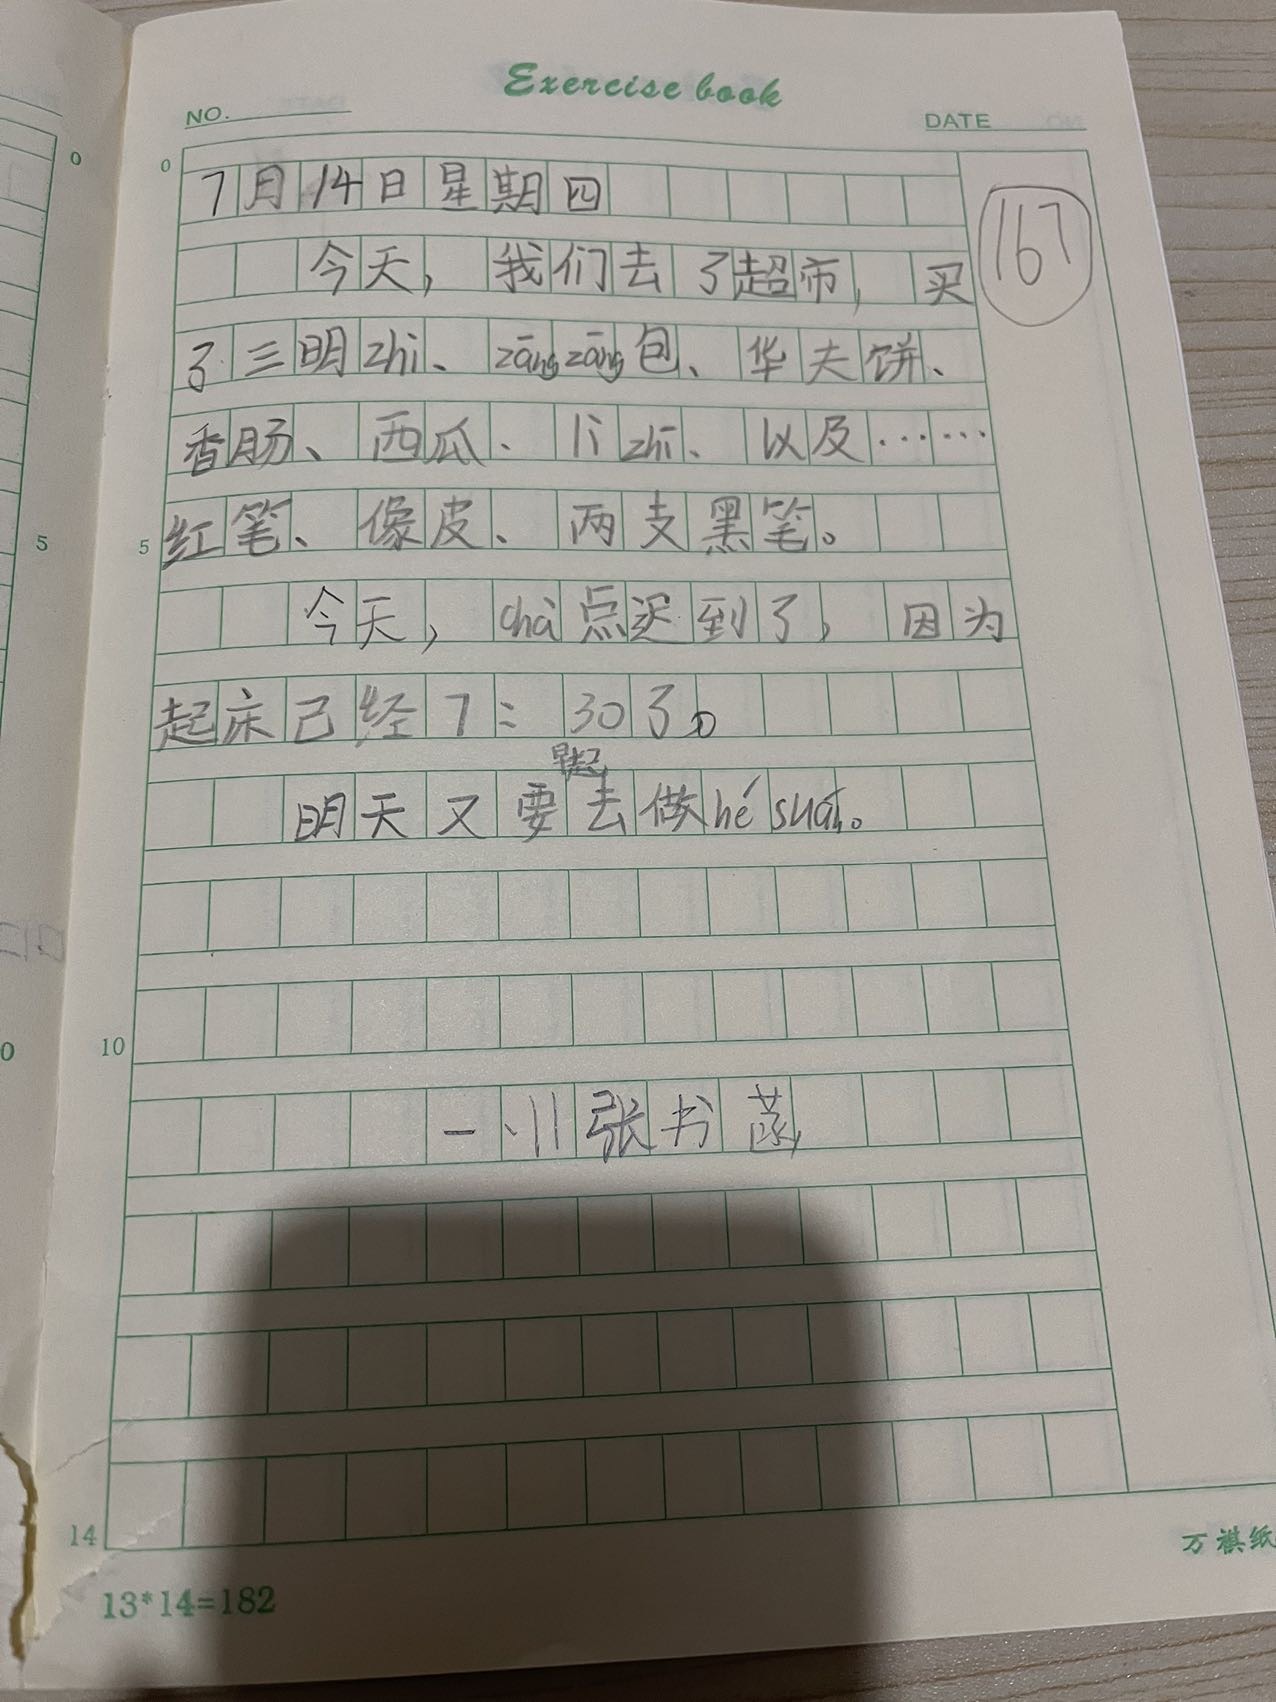 Exercise book
NO.
DATE
0
0
7月14日星期四
167
今天，我们去了超市，买
了三明zhì、zāngzāng包、华夫饼、
香肠、西瓜、lì zhī、以及……
5
5
红笔、像皮、两支黑笔。
今天，chà点迟到了，因为
起床已经7：30了。
早起
明天又要去做hé suān。
10
0
一川张书菡
14
万祺纸
13*14=182